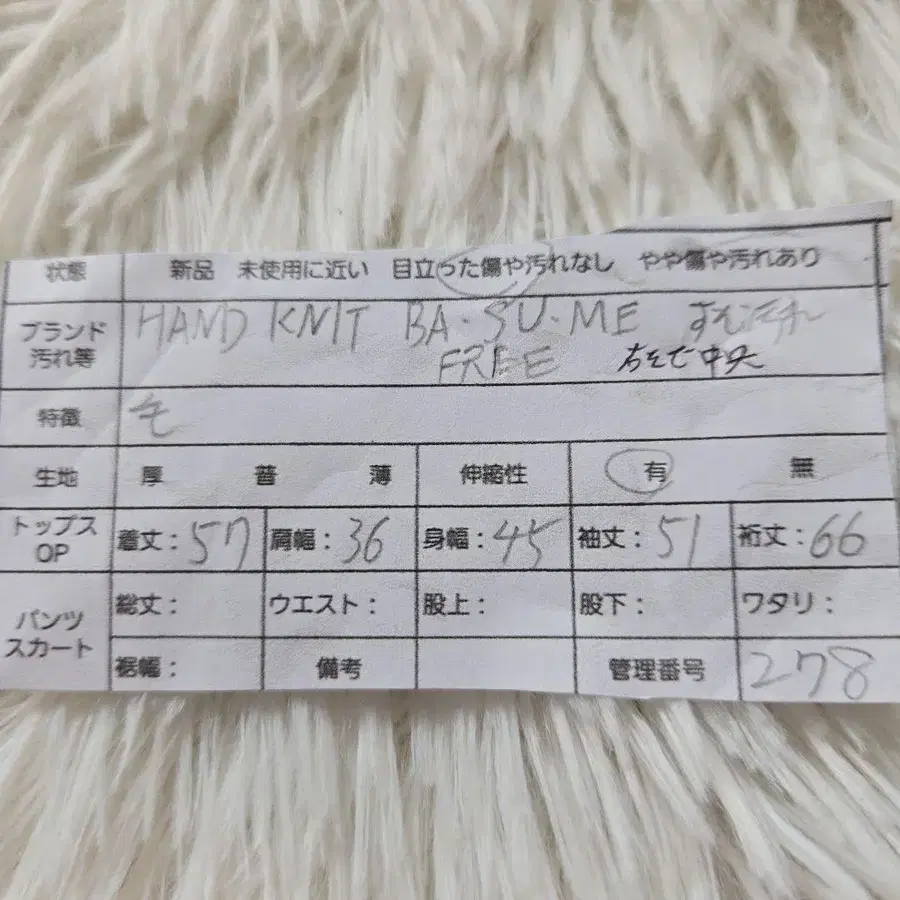 状態 新品 未使用に近い 目立った傷や汚れなし やや傷や汚れあり
ブランド HAND KNIT BA・SU・ME すそ汚れ
汚れ等 FREE 右そで中央
特徴 毛
生地 厚 普 薄 伸縮性 有 無
トップス OP 着丈:57 肩幅:36 身幅:45 袖丈:51 裄丈:66
パンツ スカート 総丈: ウエスト: 股上: 股下: ワタリ:
裾幅: 備考 管理番号 278